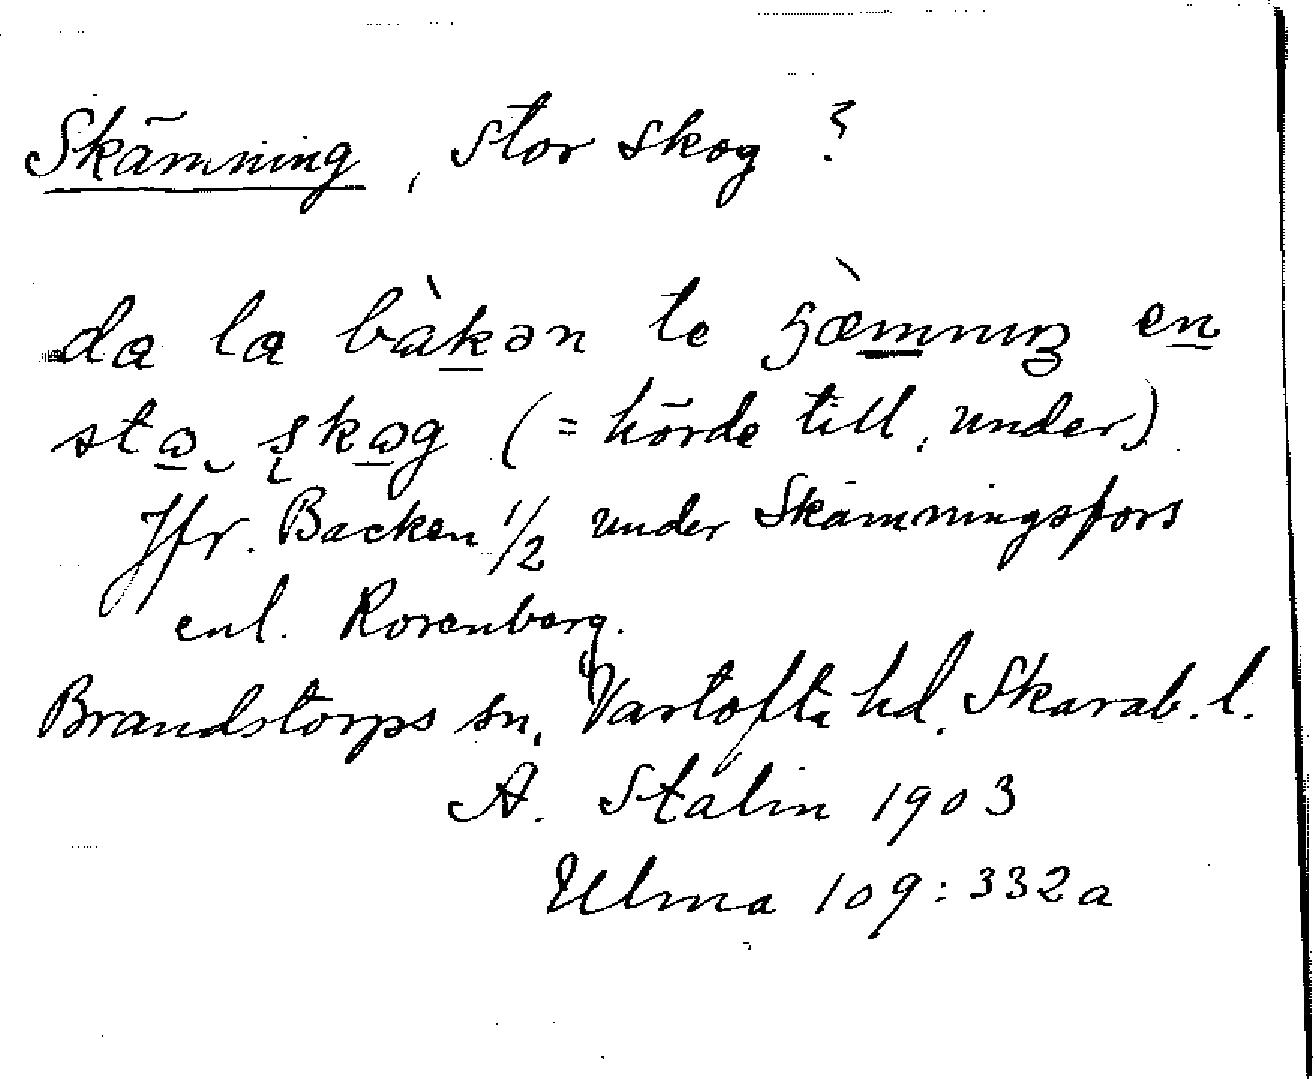 Skämning, stor skog?
da la bàkən te ʂæ̀mnıŋ en
stɷ skɷg (= hörde till, under)
Jfr. Backen 1/2 under Skämningsfors
enl. Rosenberg.
Brandstorps sn, Vartofta hd. Skarab. l.
A. Stalin 1903
Ulma 109:332a